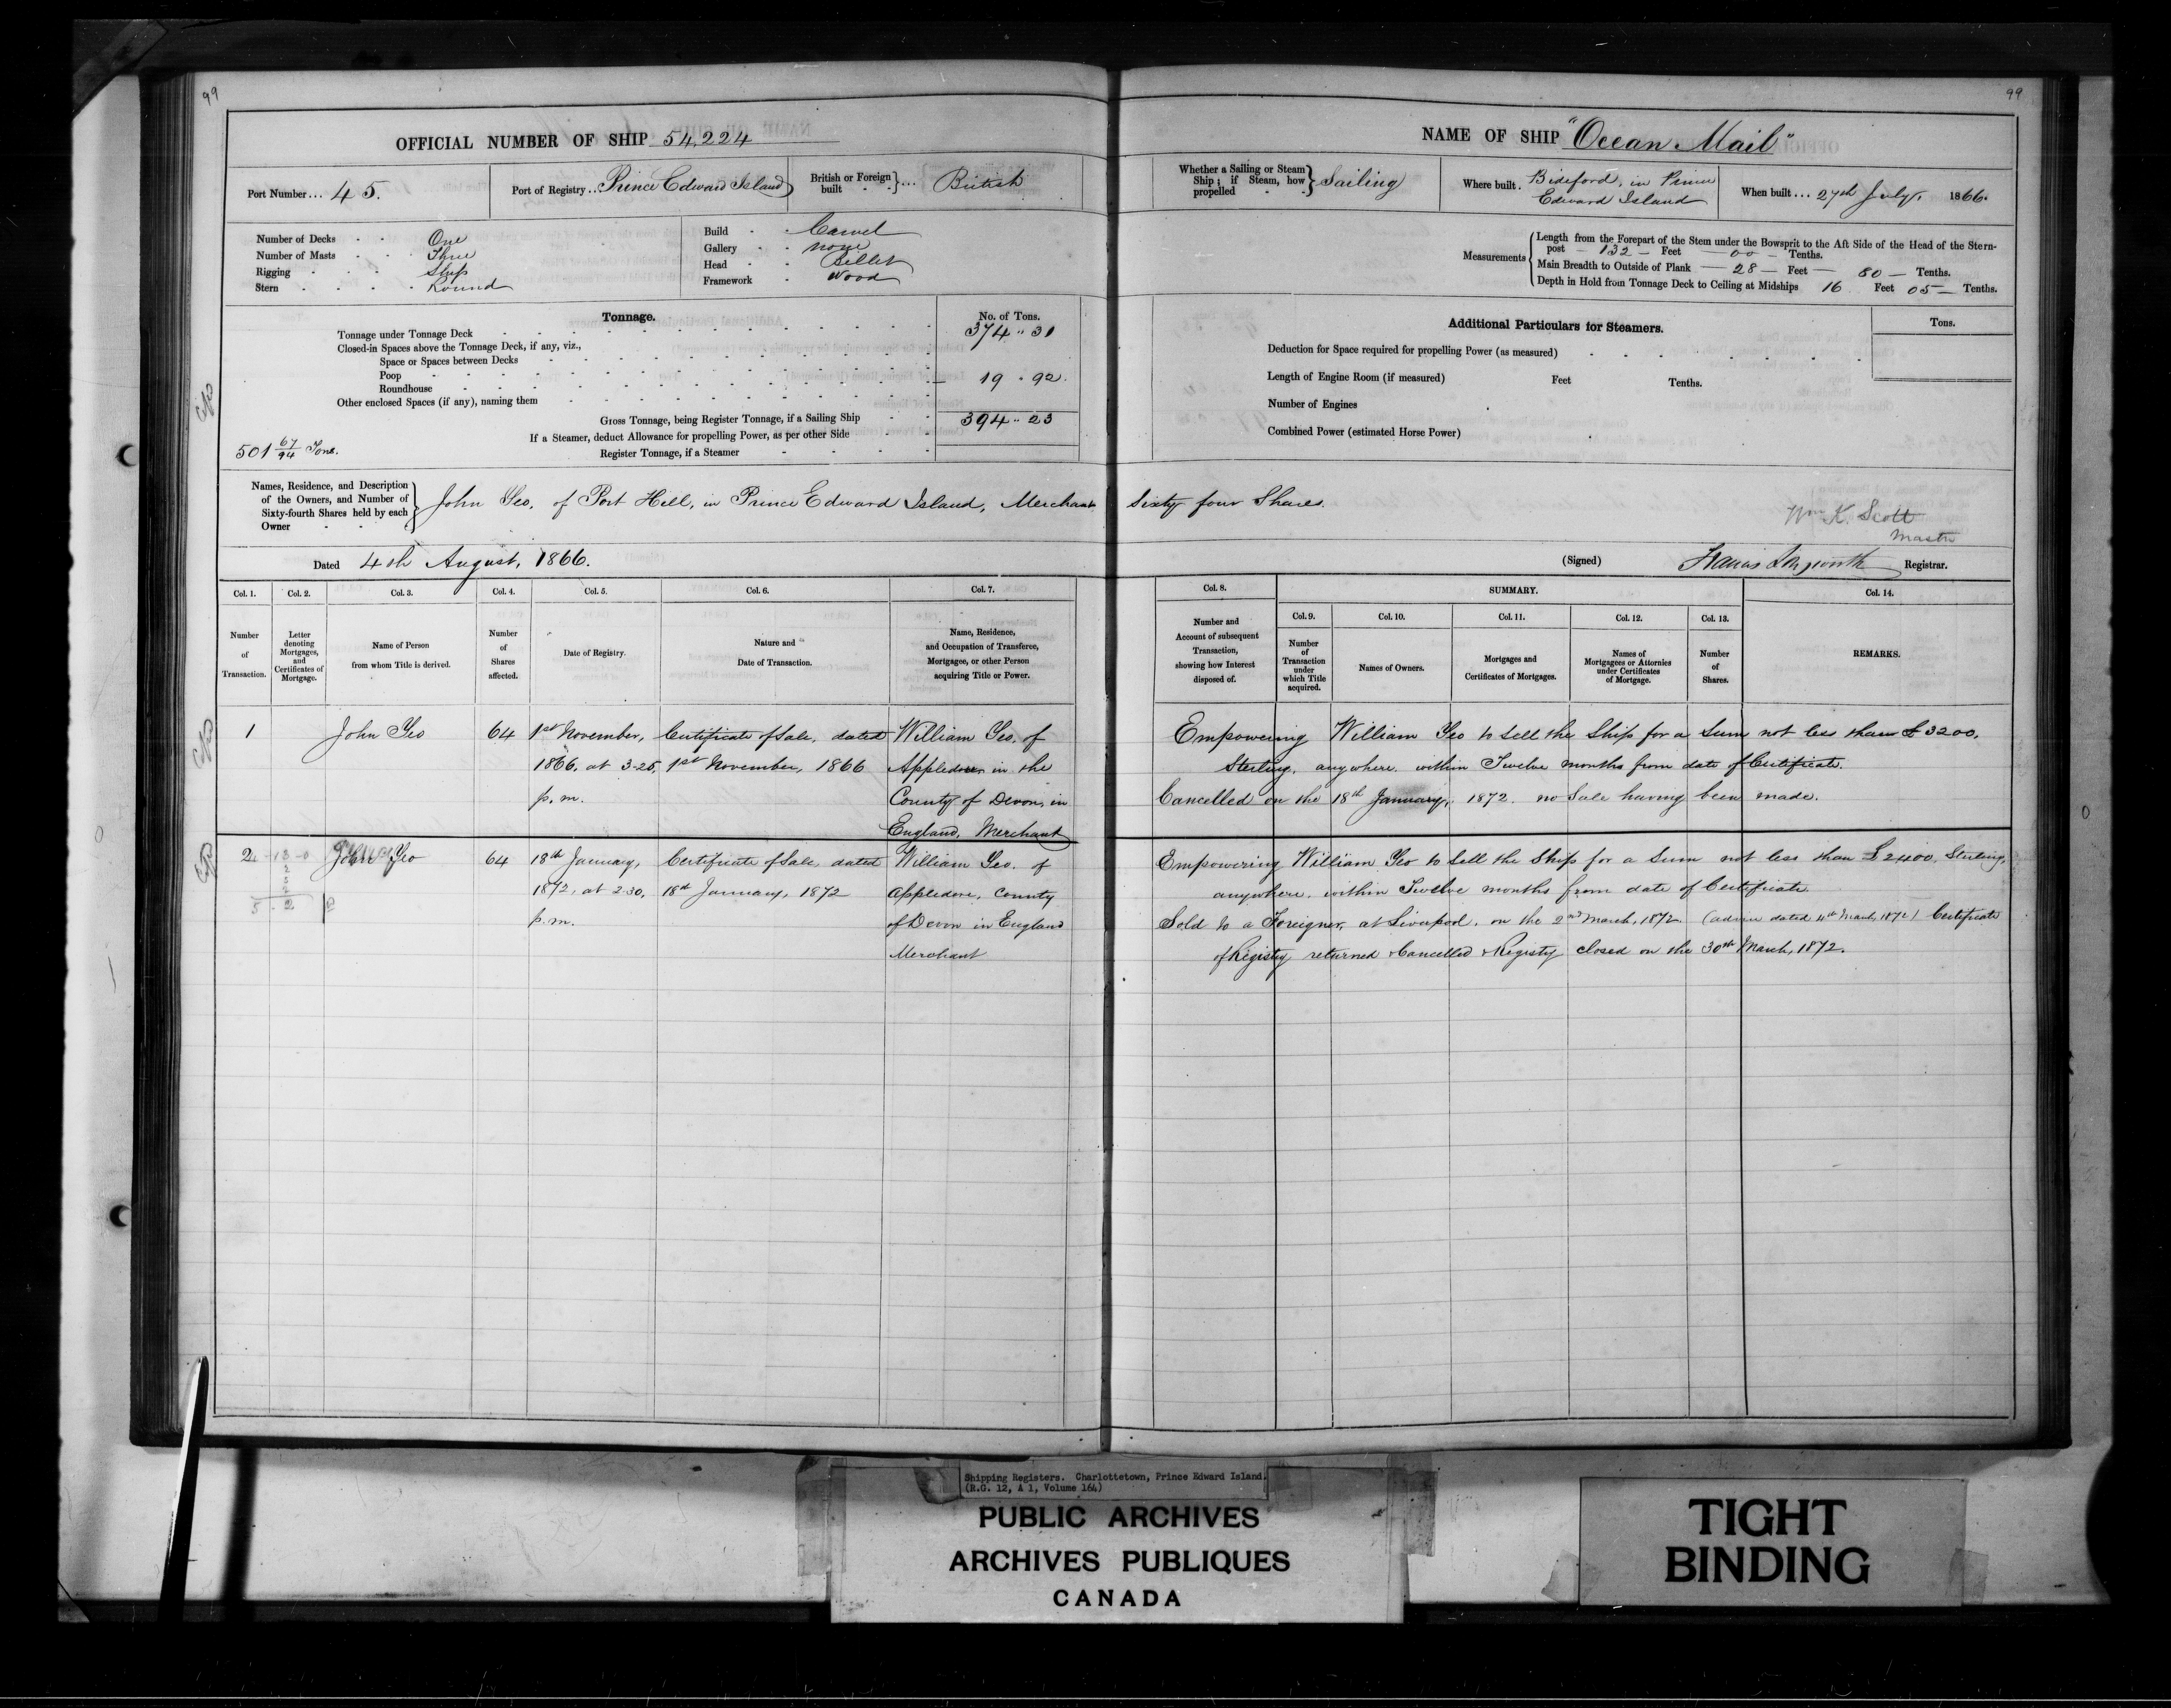 99
OFFICIAL NUMBER OF SHIP 54,224
Port Number ... 45.
Port of Registry .. Prince Edward Island
British or Foreign built } ... British
Number of Decks - - One
Number of Masts - - Three
Rigging - - - Ship
Stern - - - - Round
Build - - Carvel
Gallery - - none
Head - - Billet
Framework - Wood
Tonnage. No. of Tons.
Tonnage under Tonnage Deck 374 .. 31
Closed-in Spaces above the Tonnage Deck, if any, viz.,
Space or Spaces between Decks
Poop
Roundhouse 19 . 92.
Other enclosed Spaces (if any), naming them
Gross Tonnage, being Register Tonnage, if a Sailing Ship 394 .. 23
If a Steamer, deduct Allowance for propelling Power, as per other Side
Register Tonnage, if a Steamer
501 67/94 Tons.
Names, Residence, and Description of the Owners, and Number of Sixty-fourth Shares held by each Owner } John Yeo, of Port Hill, in Prince Edward Island, Merchant
Dated 4th August, 1866.
Col. 1. Col. 2. Col. 3. Col. 4. Col. 5. Col. 6. Col. 7.
Number of Transaction.
Letter denoting Mortgages, and Certificates of Mortgage.
Name of Person from whom Title is derived.
Number of Shares affected.
Date of Registry.
Nature and Date of Transaction.
Name, Residence, and Occupation of Transferee, Mortgagee, or other Person acquiring Title or Power.
1 John Yeo 64 1st November, Certificate of Sale, dated William Yeo, of
1866, at 3-25, 1st November, 1866 Appledore in the
p.m. County of Devon, in
England, Merchant
2 John Yeo 64 18th January, Certificate of Sale, dated William Yeo, of
1872, at 2.30, 18th January, 1872 Appledore, County
p.m. of Devon in England
Merchant
99
NAME OF SHIP "Ocean Mail"
Whether a Sailing or Steam Ship; if Steam, how propelled } Sailing
Where built . Bideford, in Prince
Edward Island
When built ... 27th July, 1866.
Measurements { Length from the Forepart of the Stem under the Bowsprit to the Aft Side of the Head of the Stern-
post - 132 - Feet - 00 - Tenths.
Main Breadth to Outside of Plank - 28 - Feet - 80 - Tenths.
Depth in Hold from Tonnage Deck to Ceiling at Midships 16 Feet 05 - Tenths.
Additional Particulars for Steamers. Tons.
Deduction for Space required for propelling Power (as measured)
Length of Engine Room (if measured) Feet Tenths.
Number of Engines
Combined Power (estimated Horse Power)
Sixty four Shares.
Wm K. Scott
Master
(Signed) Francis Longworth Registrar.
Col. 8. SUMMARY. Col. 14.
Col. 9. Col. 10. Col. 11. Col. 12. Col. 13.
Number and Account of subsequent Transaction, showing how Interest disposed of.
Number of Transaction under which Title acquired.
Names of Owners.
Mortgages and Certificates of Mortgages.
Names of Mortgagees or Attornies under Certificates of Mortgage.
Number of Shares.
REMARKS.
Empowering William Yeo to sell the Ship for a Sum not less than £3200,
Sterling, anywhere, within Twelve months from date of Certificate.
Cancelled on the 18th January, 1872. no Sale having been made.
Empowering William Yeo to sell the Ship for a Sum not less than £2400, Sterling,
anywhere, within Twelve months from date of Certificate.
Sold to a Foreigner, at Liverpool, on the 2nd March, 1872. (advice dated 4th March, 1872) Certificate
of Registry returned & Cancelled & Registry closed on the 30th March, 1872.
Shipping Registers. Charlottetown, Prince Edward Island.
(R.G. 12, A 1, Volume 164)
PUBLIC ARCHIVES
ARCHIVES PUBLIQUES
CANADA
TIGHT
BINDING